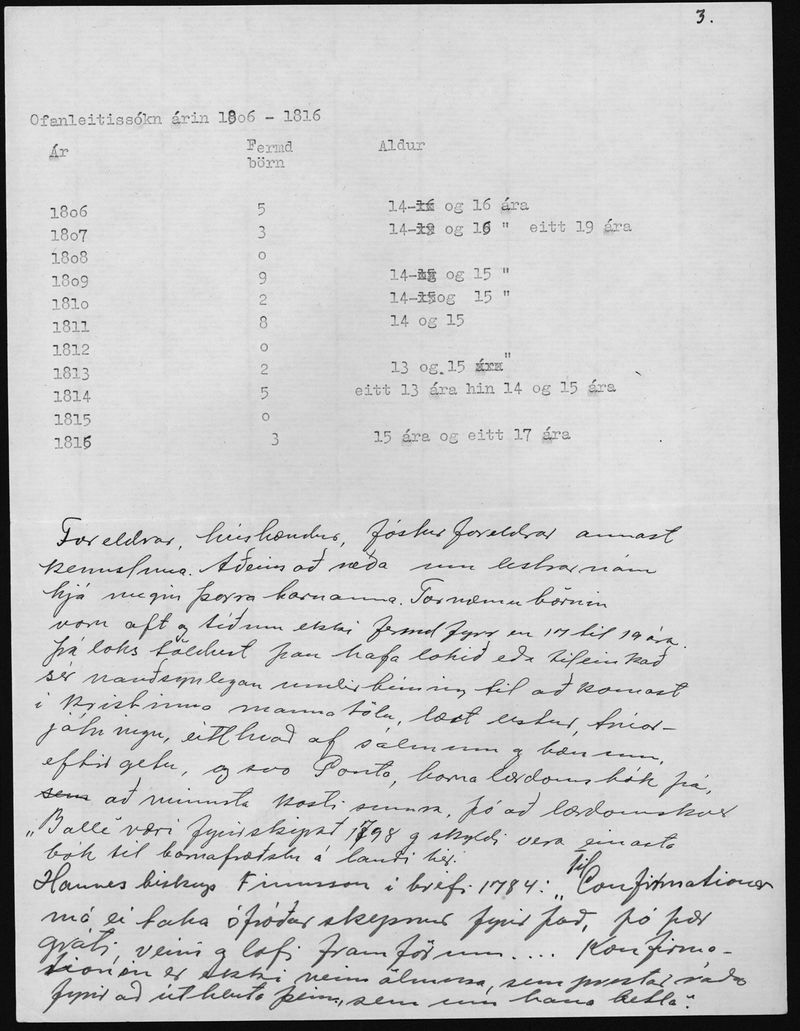 3.
Ofanleitissókn árin 1806 - 1816
Ár Fermd börn Aldur
1806 5 14- og 16 ára
1807 3 14- og 16 " eitt 19 ára
1808 o
1809 9 14- og 15 "
1810 2 14- og 15 "
1811 8 14 og 15
1812 o
1813 2 13 og 15 "
1814 5 eitt 13 ára hin 14 og 15 ára
1815 o
1816 3 15 ára og eitt 17 ára
Foreldrar, húsbændur, fósturforeldrar annast
kennsluna. Aðeins að ræða um lestrarnám
hjá megin þorra barnanna. Tornæmu börnin
voru oft og tíðum ekki fermd fyrr en 17 til 19 ára.
Þá loks töldust þau hafa lokið eða tileinkað
sér nauðsynlegan undirbúning til að komast
í kristinna manna tölu, lært lestur, trúar-
játningu, eitthvað af sálmum og bænum,
eftir getu, og svo Ponta, barnalærdómsbók þá,
sem að minnsta kosti sumra, þó að lærdómskver
"Balle" væri fyrirskipað 1798 og skyldi vera einasta
bók til barnafræðslu á landi hér.
Hannes biskup Finnsson í bréfi 1784: "til Confirmationer
má ei taka ófróðar skepnur fyrir það, þó þær
gráti, veini og lofi framförum .... Konfirma-
tionen er ekki nein ölmusa, sem prestar ráða
fyrir að útbýta þeim, sem um hana betla".